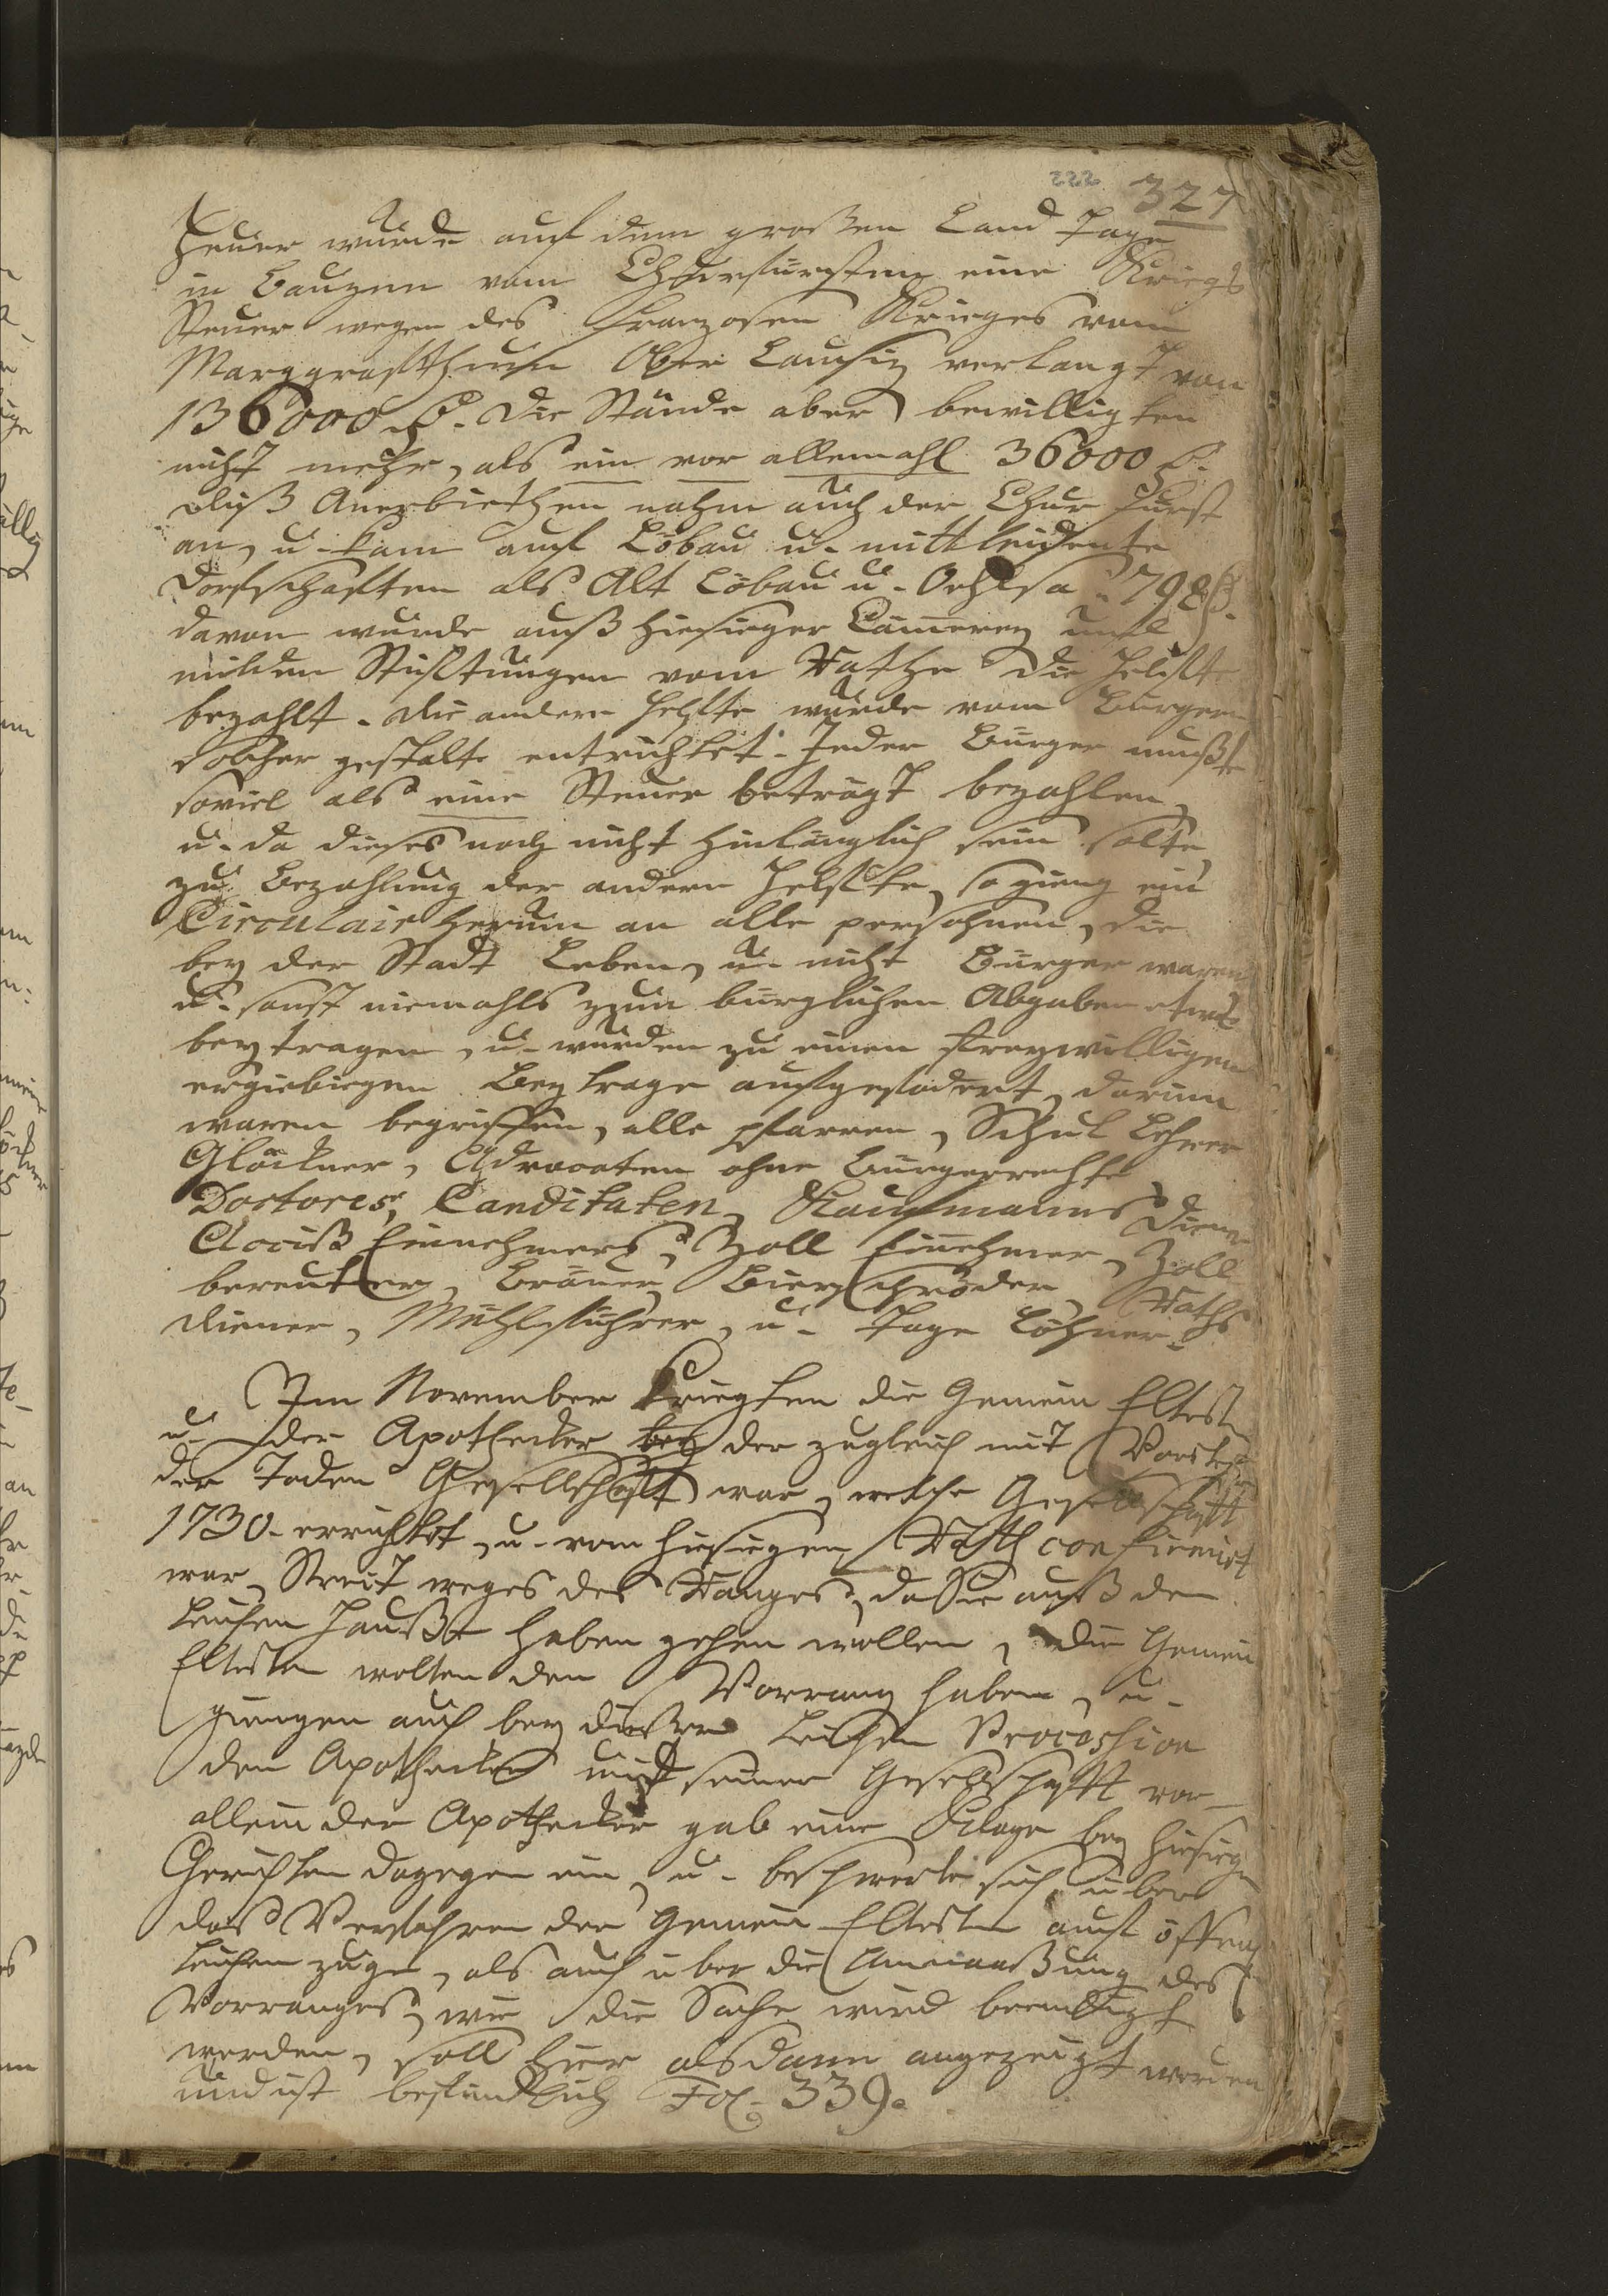 222 327
Heuer wurde auf dem großen Land Tage
in Bauzen vom Churfürsten eine Kriegs
Steuer wegen des Franzosen Krieges vom
Marggrafthum Ober Lausiz verlangt von
136000 rthl. Die Stände aber bewilligten
nicht mehr, als ein vor allemahl 36000 rthl.
diß Anerbiethen nahm auch der Chur Fürst
an, u. kam auf Löbau u. mittleidente
Dorfschaften als Alt Löbau u. Oehlsa 798 rthl.
davon wurde auß hiesieger Cämmerey und
milden Stifftungen vom Rathe die Helfte
bezahlt. die andere Helfte wurde vom Bürgern
solcher gestalte entrichtet. Jeder Bürger mußte
soviel als eine Steuer beträgt bezahlen,
u. da dieses noch nicht hinlänglich sein solte,
zu Bezahlung der andern Helfte, so gieng ein
Circulair herum an alle persohnen, die
bey der Stadt Leben, u. nicht Bürger waren
u. sonst niemahls zum bürglichen Abgaben etwas
beytragen, u. wurden zu einen freywilligen
ergiebiegen Beytrage aufgefodert, darum
waren begriffen, alle pfarren, Schul Lehrer
Glöckner, Advocaten ohne Bürgerrechte
Doctores, Canditaten, Kaufmanns Diener
Acciß Einnehmers, Zoll Einnehmer, Zoll
bereuter, Bräuer, Bierschröder, Raths
diener, Mühlführer, u. Tage Löhner.
Im November kriegten die Gemein Eltesten
u. der Apothecker der zugleich mit Vorsteher
der Toden Gesellschafft war, welche Gesellschafft
1730. errichtet, u. vom hiesiegen Rath confirmirt
war, Streit weges des Ranges, da sie auß den
Leichen Hauße haben gehen wollen, die Gemein
Eltesten wolten den Vorrang haben, u.
giengen auch bey dießer Leichen Procession
den Apothecker mit seiner Gesellschafft vor
allein der Apothecker gab eine Klage bey hiesiegen
Gerichten dagegen ein, u. beschwerte sich über
das Verfahren der Gemein Eltesten auf öffent
Leichen zuge, als auch über die Anmaaßung des
Vorranges, wie die Sache wird beendigt
werden, soll hier alsdann angezeigt werden
und ist befindlich Fol. 339.